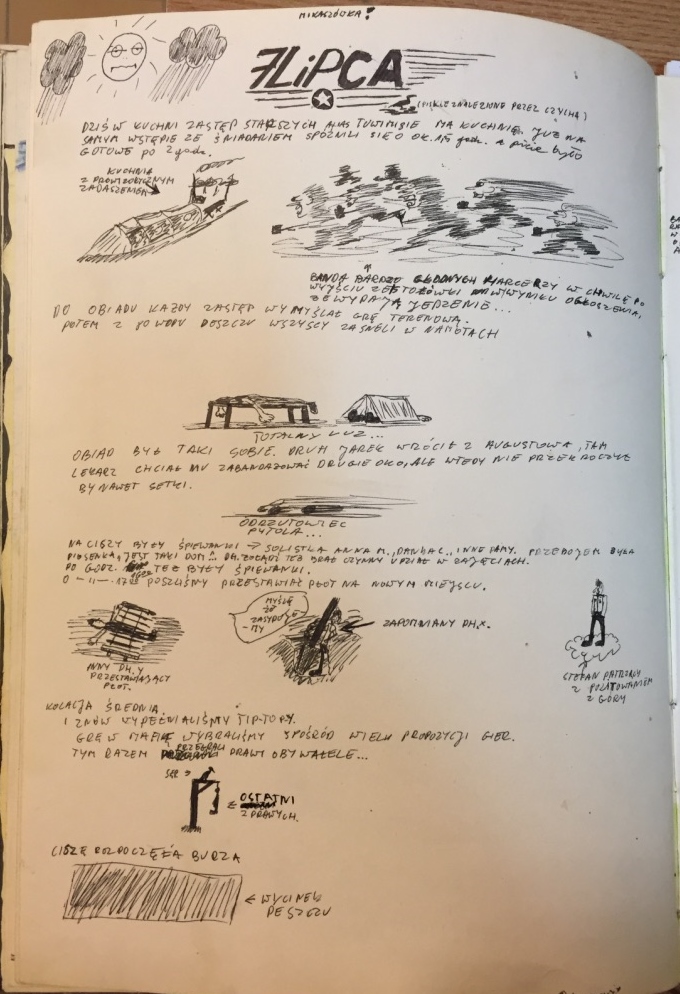 MIKASZÓWKA!
7 LIPCA
(PIÓRKO ZNALEZIONE PRZEZ CZYCHA)
DZIŚ W KUCHNI ZASTĘP STARSZYCH ALIAS TUWIMISIE MA KUCHNIĘ. JUŻ NA
SAMYM WSTĘPIE ZE ŚNIADANIEM SPÓŹNILI SIĘ O OK. godz. a picie było
GOTOWE po 2 godz.
KUCHNIA
Z PROWIZORYCZNYM
ZADASZENIEM
BANDA BARDZO GŁODNYCH HARCERZY W CHWILĘ PO
WYJŚCIU ZE STOŁÓWKI W WYNIKU OGŁOSZENIA,
ŻE WYDAJĄ JEDZENIE...
DO OBIADU KAŻDY ZASTĘP WYMYŚLAŁ GRĘ TERENOWĄ.
POTEM Z POWODU DESZCZU WSZYSCY ZASNĘLI W NAMIOTACH
TOTALNY LUZ...
OBIAD BYŁ TAKI SOBIE. DRUH JAREK WRÓCIŁ Z AUGUSTOWA, TAM
LEKARZ CHCIAŁ MU ZABANDAŻOWAĆ DRUGIE OKO, ALE WTEDY NIE PRZEKROCZYŁ
BY NAWET SETKI.
ODRZUTOWIEC
NA CISZY BYŁY ŚPIEWANKI → SOLISTKA ANNA M., DANKA C., INNE DAMY. PRZEBOJEM BYŁA
PIOSENKA "JEST TAKI DOM". TEŻ BRAŁ CZYNNY UDZIAŁ W ZAJĘCIACH.
PO GODZ. TEŻ BYŁY ŚPIEWANKI.
O -11- 17 POSZLIŚMY PRZESTAWIAĆ PŁOT NA NOWYM MIEJSCU.
MYŚLĘ
ŻE
ZASYPUJE
-MY
ZAPOMNIANY DH. X.
INNY DH. Y
PRZESTAWIAJĄCY
PŁOT.
STEFAN PATRZĄCY
Z POLITOWANIEM
Z GÓRY
KOLACJA ŚREDNIA.
I ZNÓW WYPEŁNIALIŚMY TIP-TOPY.
GRĘ W MAFIĘ WYBRALIŚMY SPOŚRÓD WIELU PROPOZYCJI GIER.
TYM RAZEM PRZEGRALI PRAWI OBYWATELE...
SĘP →
← OSTATNI
Z PRAWYCH.
CISZĘ ROZPOCZĘŁA BURZA
← WYCINEK
DESZCZU